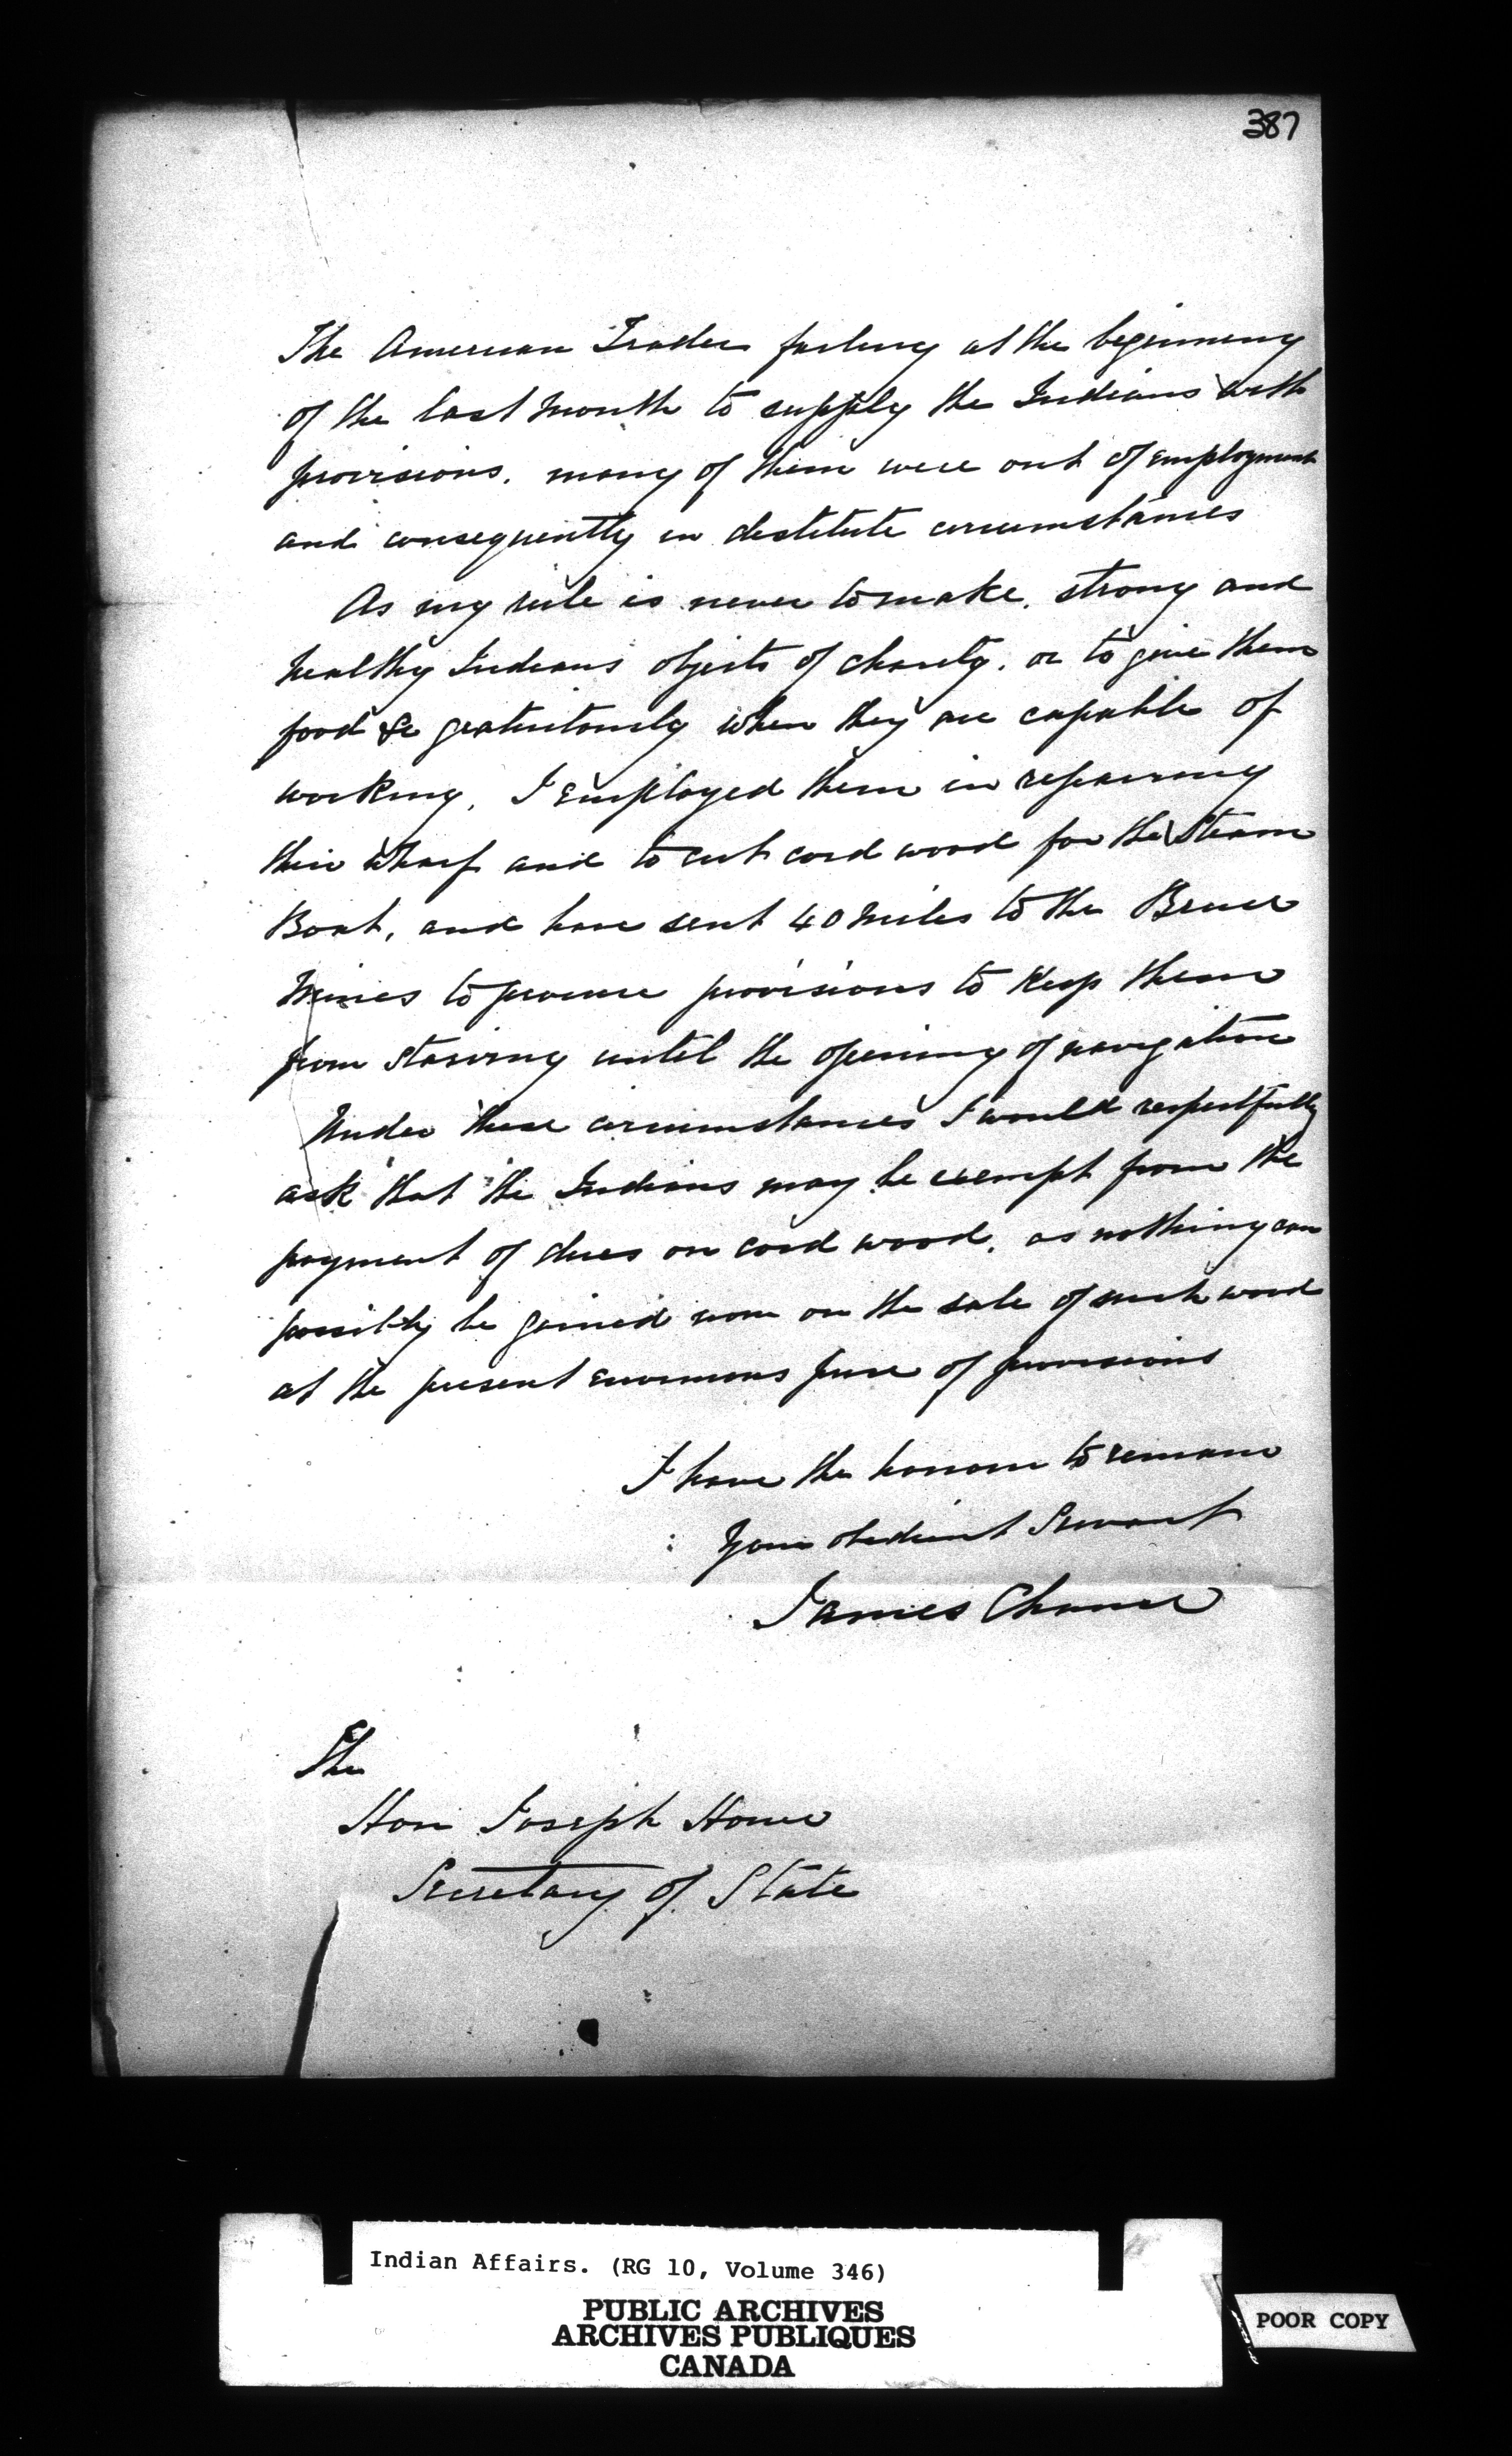 387
The American Trader failing at the beginning
of the last month to supply the Indians with
provisions, many of them were out of employment
and consequently in destitute circumstances
As my rule is never to make, strong and
healthy Indians objects of charity, or to give them
food &c gratuitously when they are capable of
working, I employed them in repairing
their wharf and to cut cord wood for the Steam
Boat, and have sent 40 miles to the Bruce
Mines to procure provisions to keep them
from starving until the opening of navigation
Under these circumstances I would respectfully
ask that the Indians may be exempt from the
payment of dues on cord wood, as nothing can
possibly be gained now on the sale of such wood
at the present enormous price of provisions
I have the honour to remain
Your obedient Servant
James Chance
The
Hon Joseph Howe
Secretary of State
Indian Affairs. (RG 10, Volume 346)
PUBLIC ARCHIVES
ARCHIVES PUBLIQUES
CANADA
POOR COPY